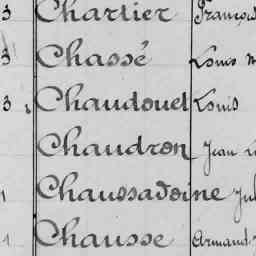 3 Chartier François
3 Chassé Louis
3 Chaudouet Louis
Chaudron Jean
1 Chaussadoine Jul
1 Chausse Armand